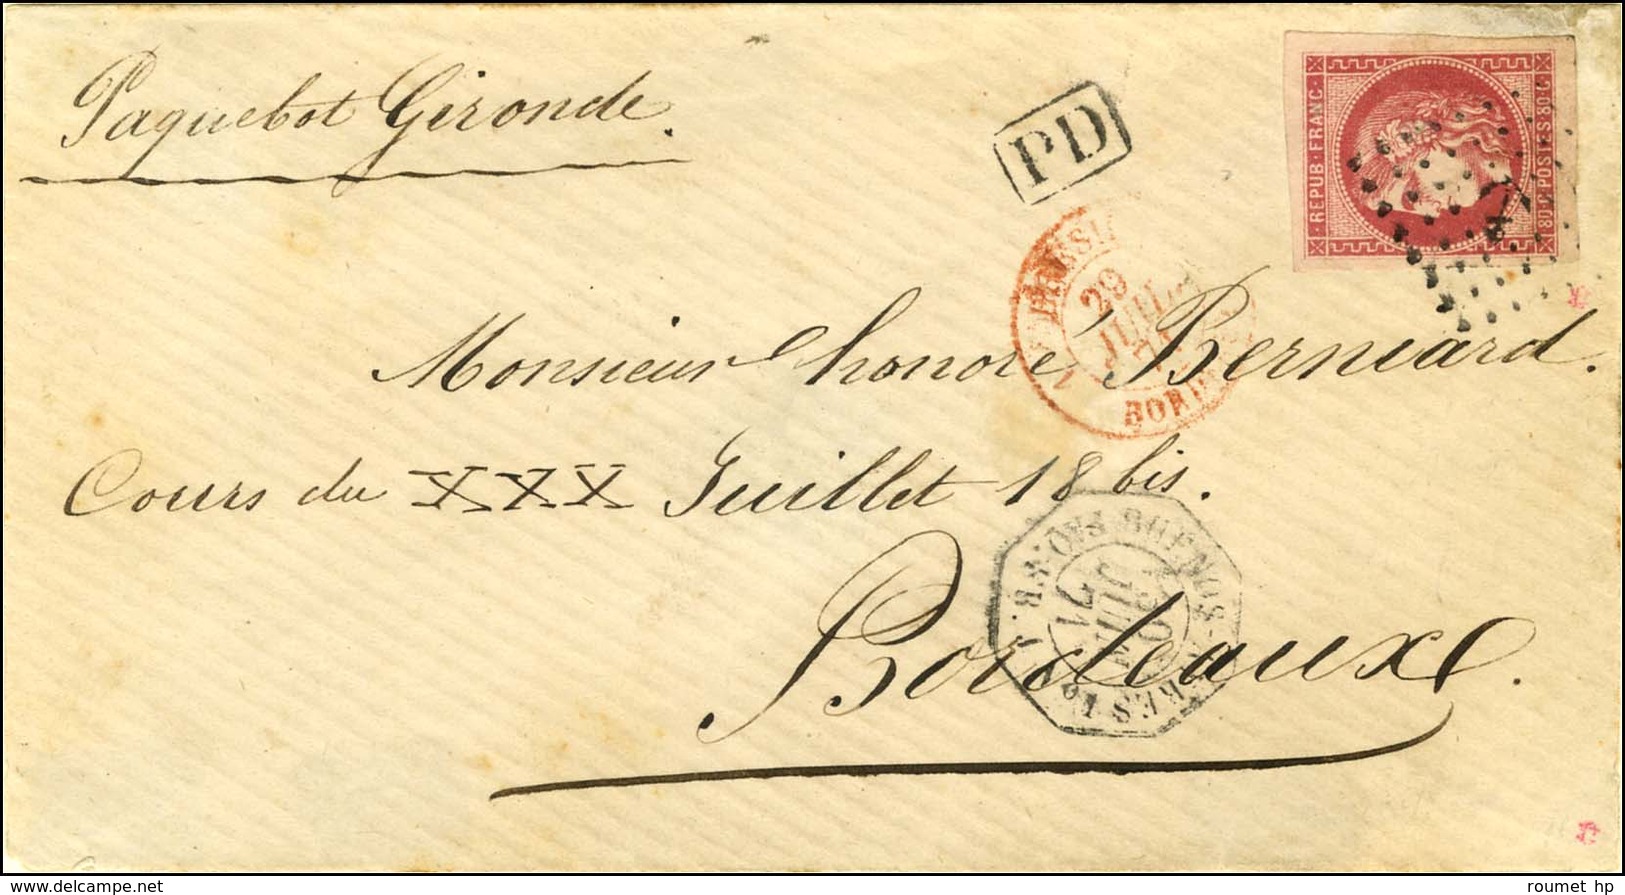 Paquebot Gironde.
PD
· REPUB · FRANC ·
80 · C · POSTES 80 C ·
BRESIL
29
JUIL
BORD
Monsieur honoré Berniard.
Cours du XXX Juillet 18 bis.
BUENOS-AYRES
JUIN
71
Bordeaux.
roumet hp